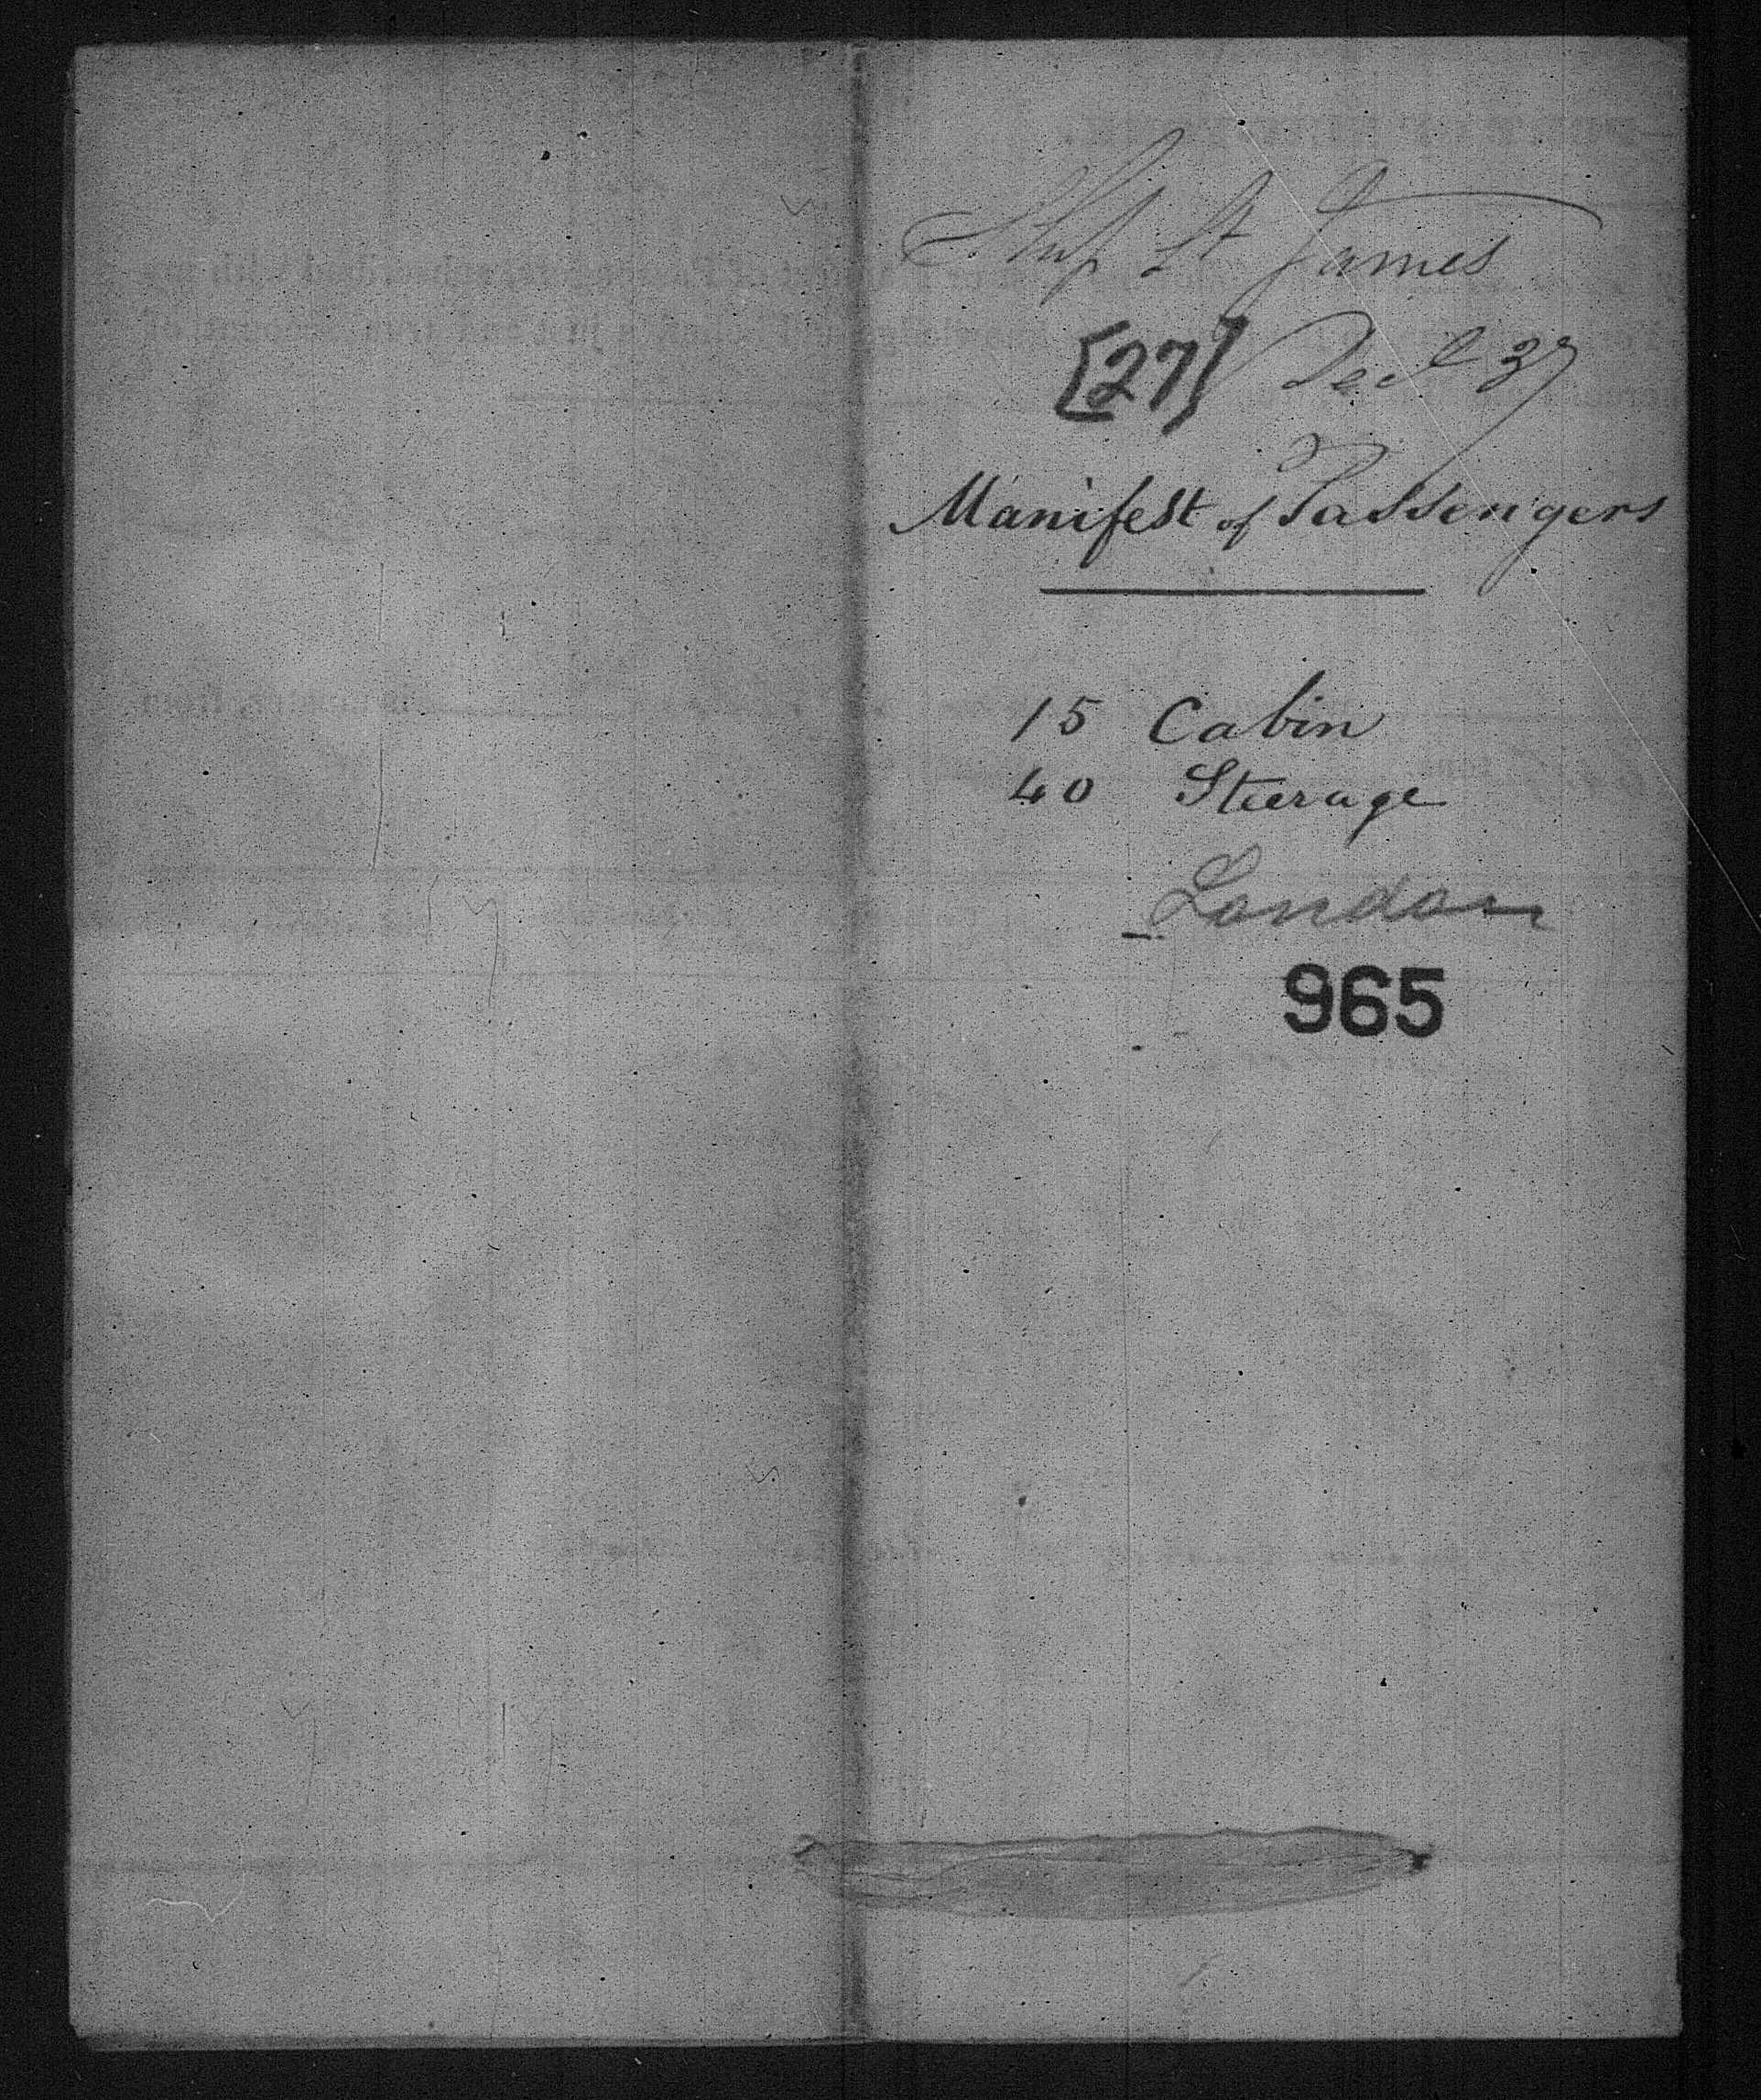 Ship St James
[27] Decr 37
Manifest of Passengers
15 Cabin
40 Steerage
London
965